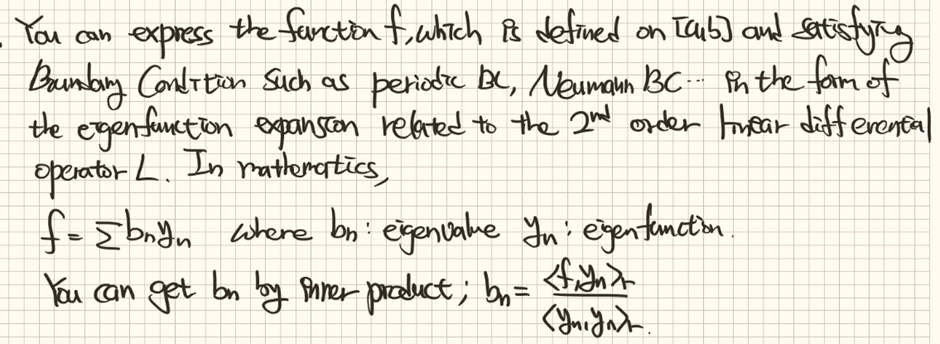 . You can express the function f, which is defined on [a,b] and satisfying
Boundary Condition such as periodic BC, Neumann BC... in the form of
the eigenfunction expansion related to the 2nd order linear differential
operator L. In mathematics,
f = Σ bnyn where bn : eigenvalue yn : eigenfunction.
You can get bn by inner product; bn = <f,yn>r / <yn,yn>r.